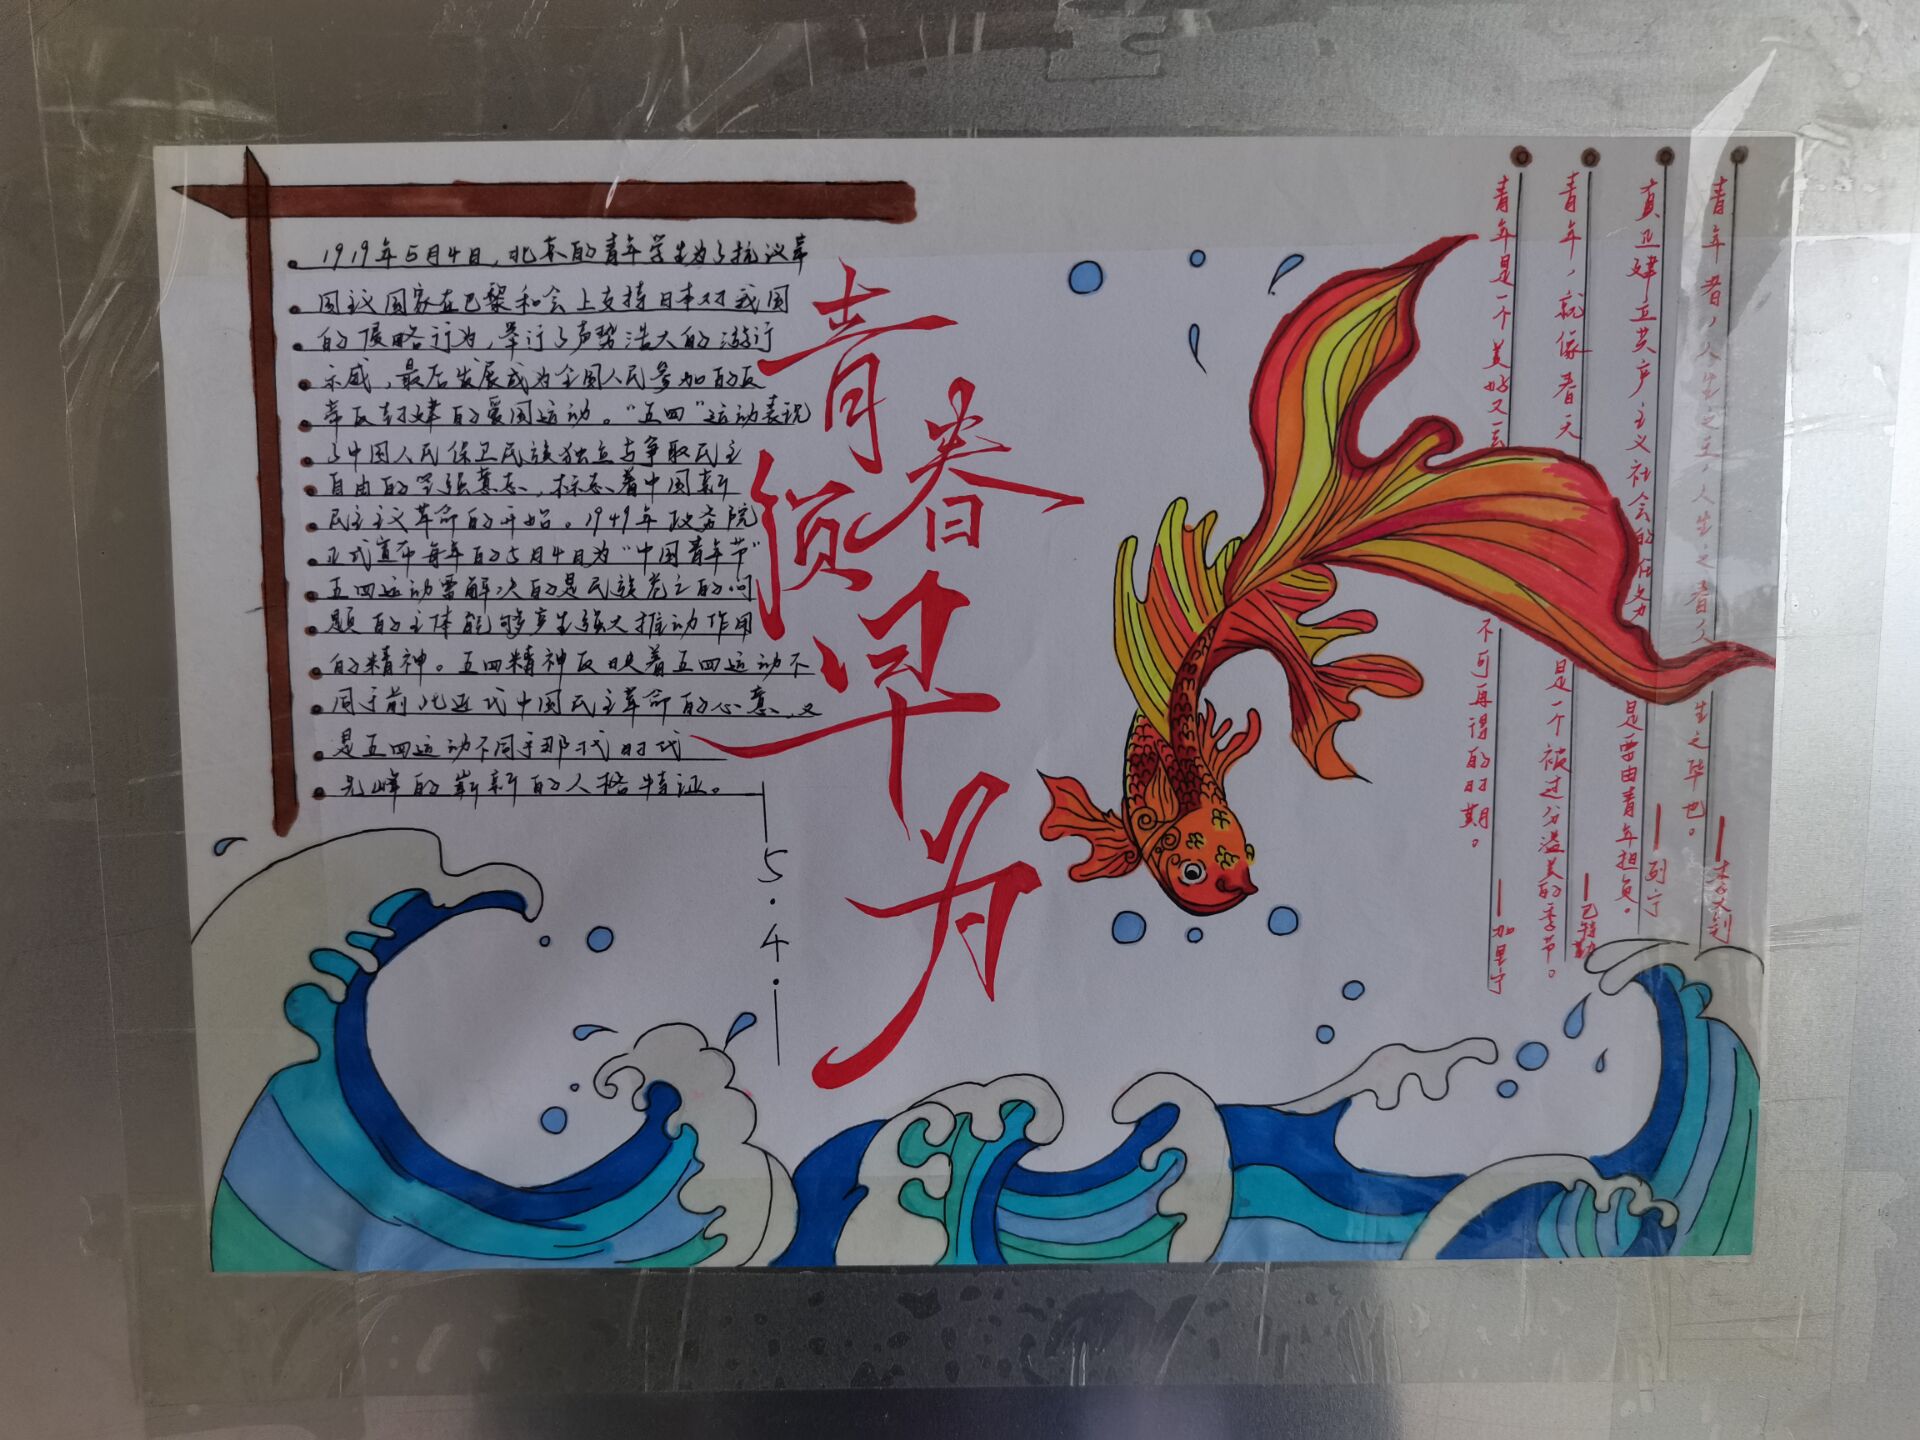 1919年5月4日，北京的青年学生为了抗议帝
国主义国家在巴黎和会上支持日本对我国
的侵略行为，举行了声势浩大的游行
示威，最后发展成为全国人民参加的反
帝反封建的爱国运动。“五四”运动表现
了中国人民保卫民族独立与争取民主
自由的坚强意志，标志着中国新
民主主义革命的开始。1949年政务院
正式宣布每年的5月4日为“中国青年节”
五四运动需解决的是民族危亡的问
题的主体能够产生强大推动作用
的精神。五四精神反映着五四运动不
同于前此近代中国民主革命的心意，又
是五四运动不同于那代时代
先峰的崭新的人格特证。
5.4.
青春
须早为
青年者，人生之王，人生之春，人生之华也。
—李大钊
真正建立共产主义社会的任务 是要由青年担负。
—列宁
青年，就像春天 是一个被过分溢美的季节。
—巴特勒
青年是一个美好又 不可再得的时期。
—加里宁